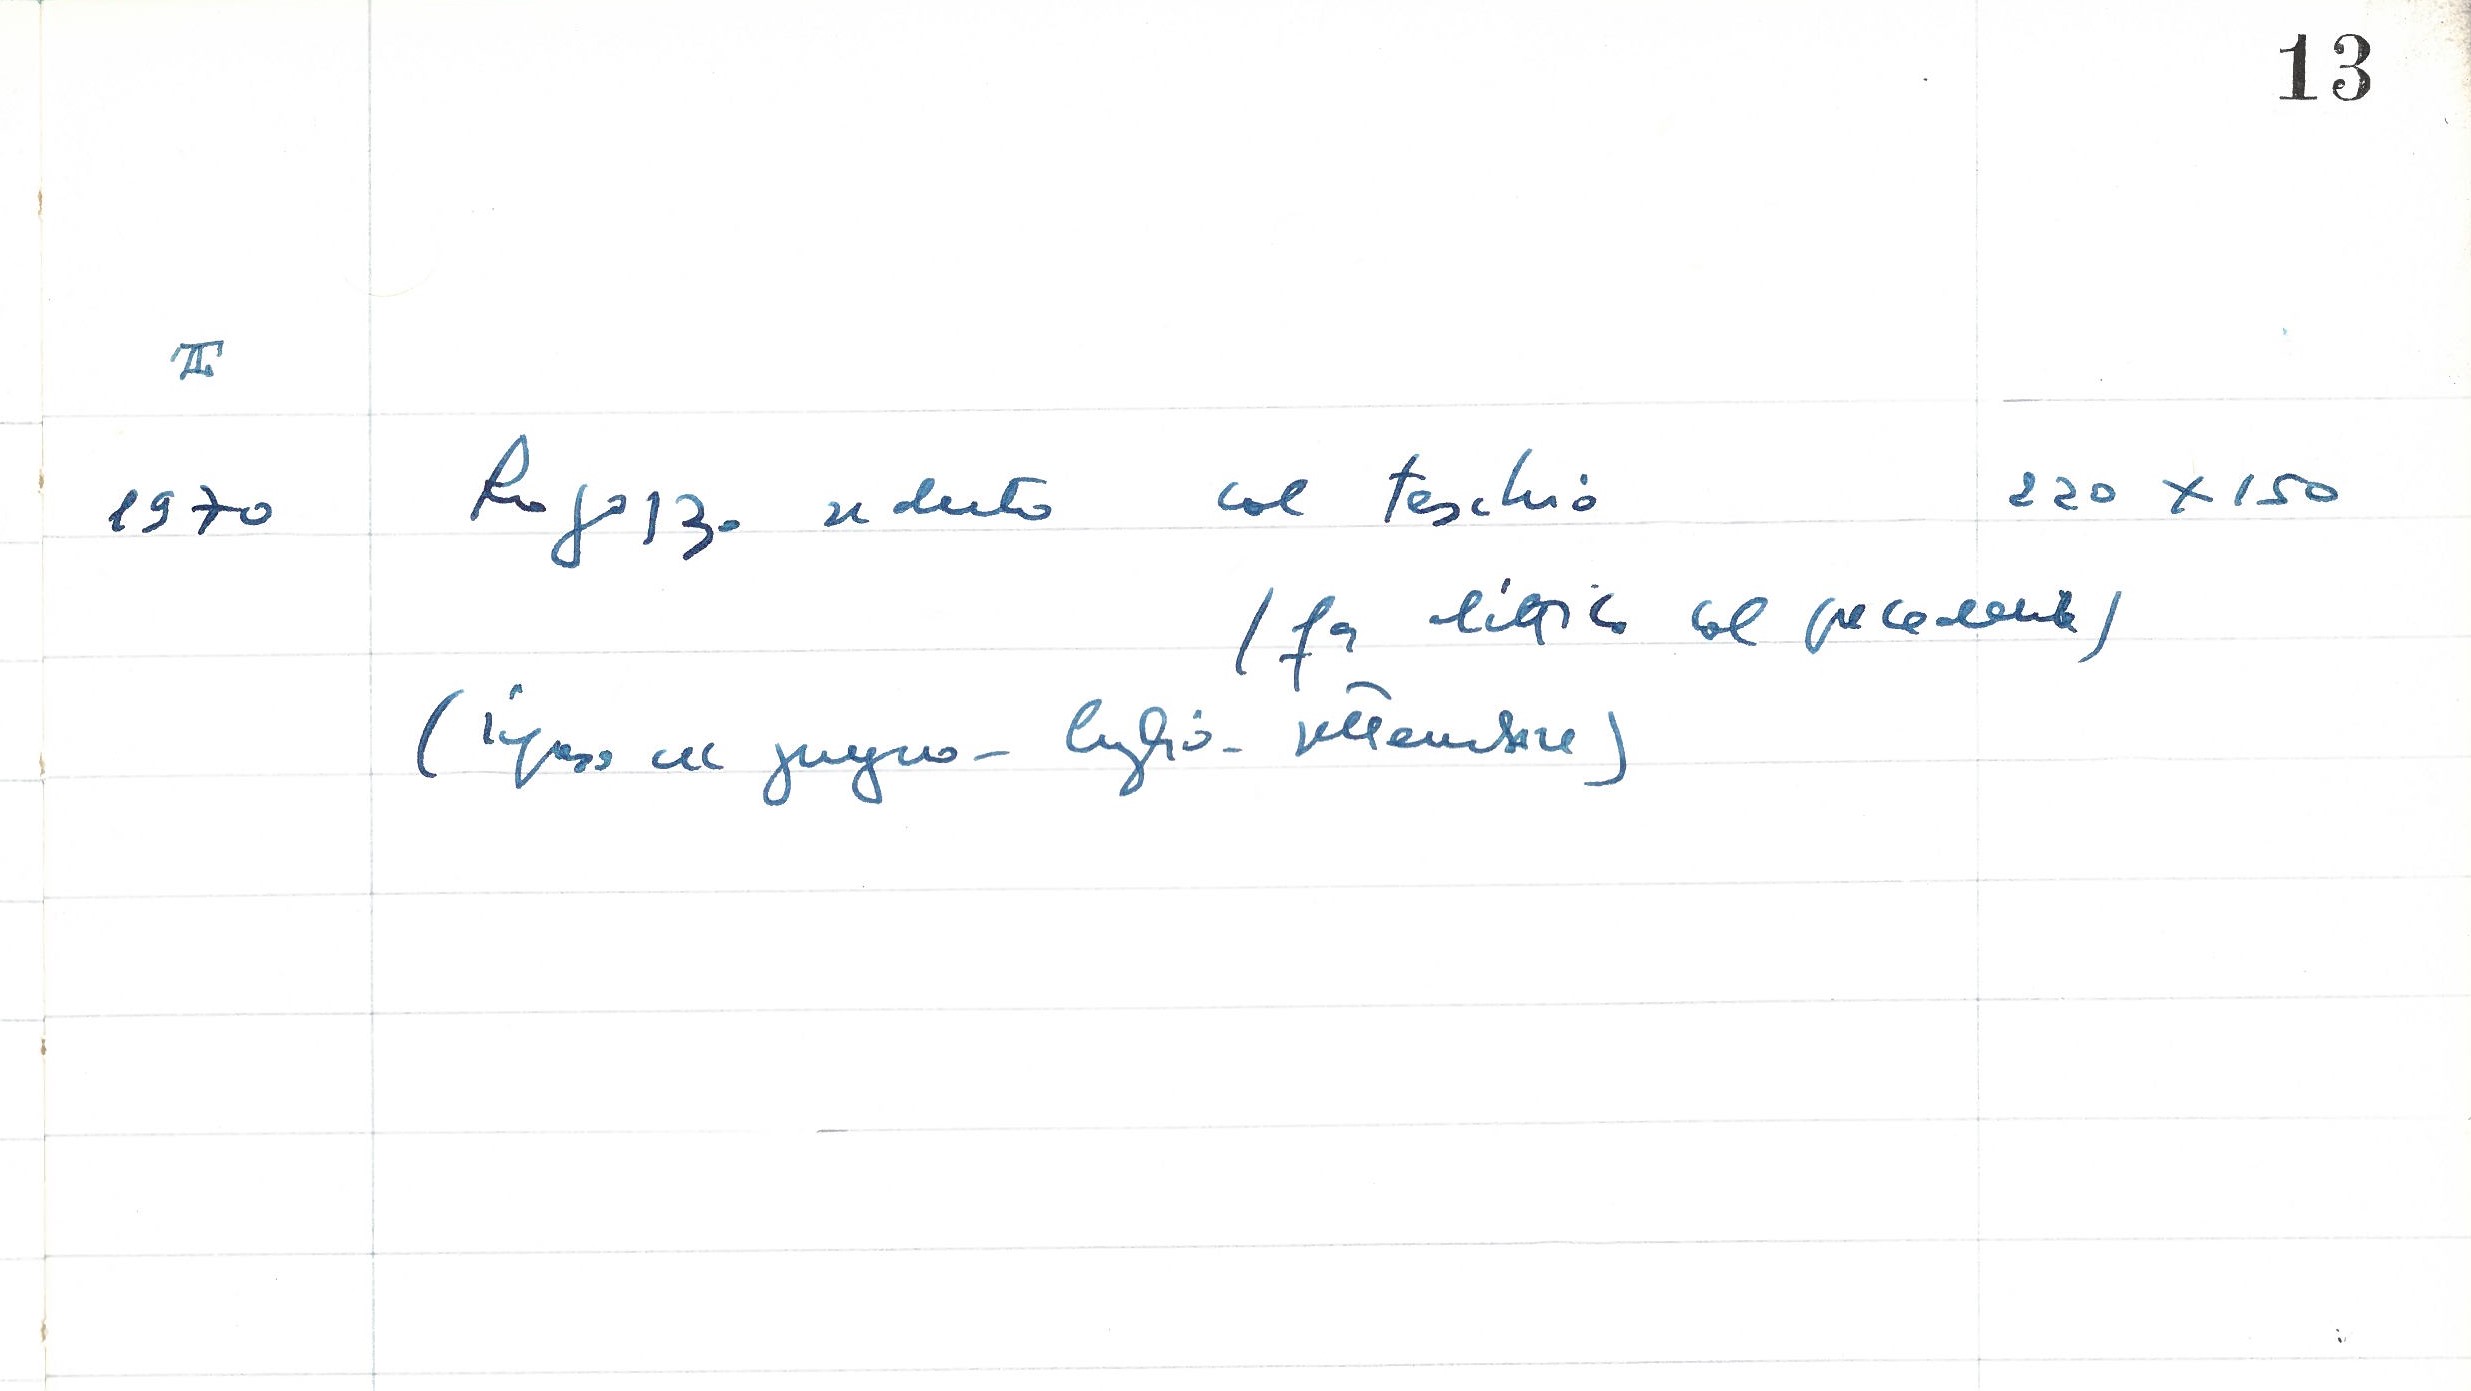 13
II
1970 Ragazzo seduto col teschio 220 x 150
(fa dittico col precedente)
(ripreso in giugno - luglio - settembre)